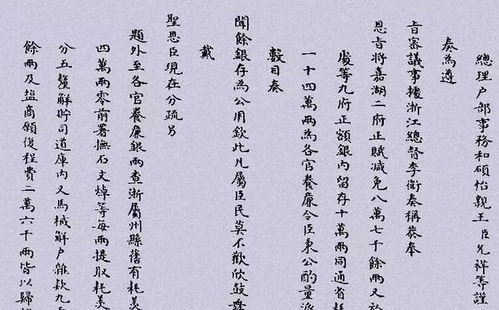 總理户部事務和碩怡親王臣允祥等謹
奏為遵
旨審議事據浙江總督李衛奏稱恭奉
恩旨將嘉湖二府正賦減免八萬七千餘兩又於
等九府正額銀內留存十萬兩同通省耗
一十四萬兩為各官養廉令臣秉公酌量派
數目奏
聞餘銀存為公用欽此凡屬臣民莫不歡欣鼓舞
戴
聖恩臣現在分疏另
題外至各官養廉銀兩查浙屬州縣舊有耗羡
四萬兩零前署撫石文焯等每兩提取耗羡
分五釐解貯司道庫內又馬械解户雜款九
餘兩及塩商願復程費二萬六千兩皆以歸